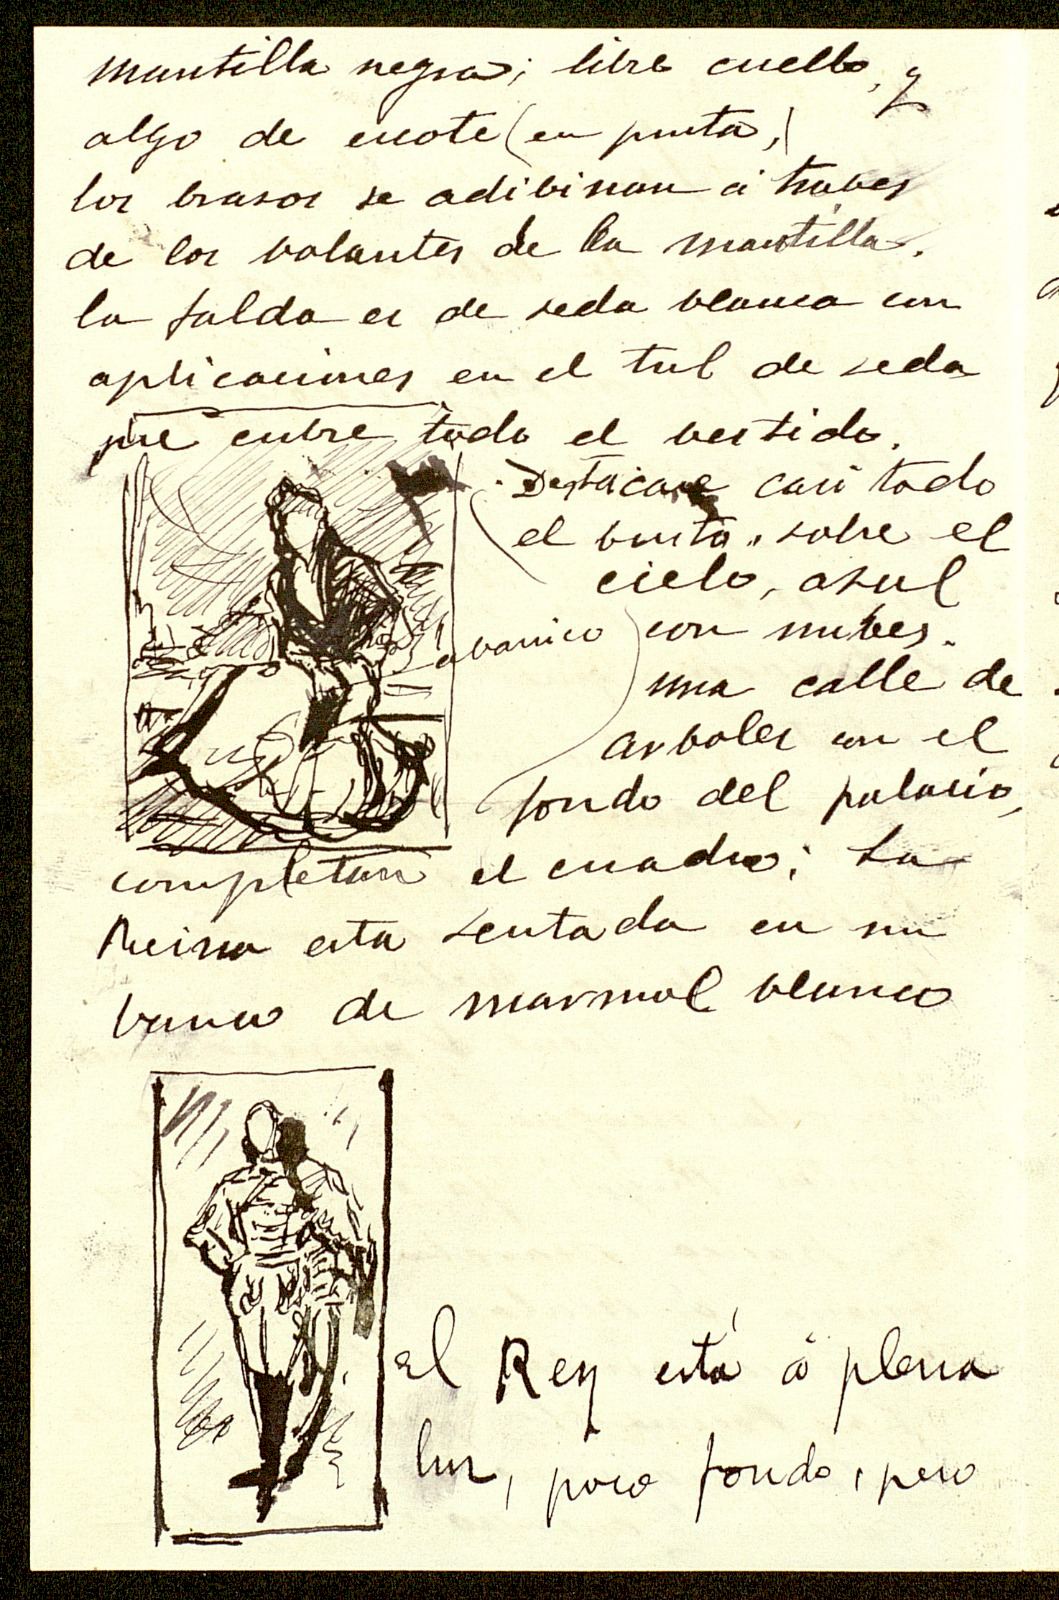 mantilla negra; libre cuello, y
algo de escote (en punta,)
los brasos se adibinan á trabes
de los bolantes de la mantilla.
la falda es de seda blanca con
aplicaciones en el tul de seda
que cubre todo el bestido.
Destacase casi todo
el busto, sobre el
cielo, asul
abanico
con nubes.
una calle de
arboles con el
fondo del palacio,
completan el cuadro; La
Reina esta sentada en un
banco de marmol blanco
El Rey está á plena
lus, poco fondo, pero